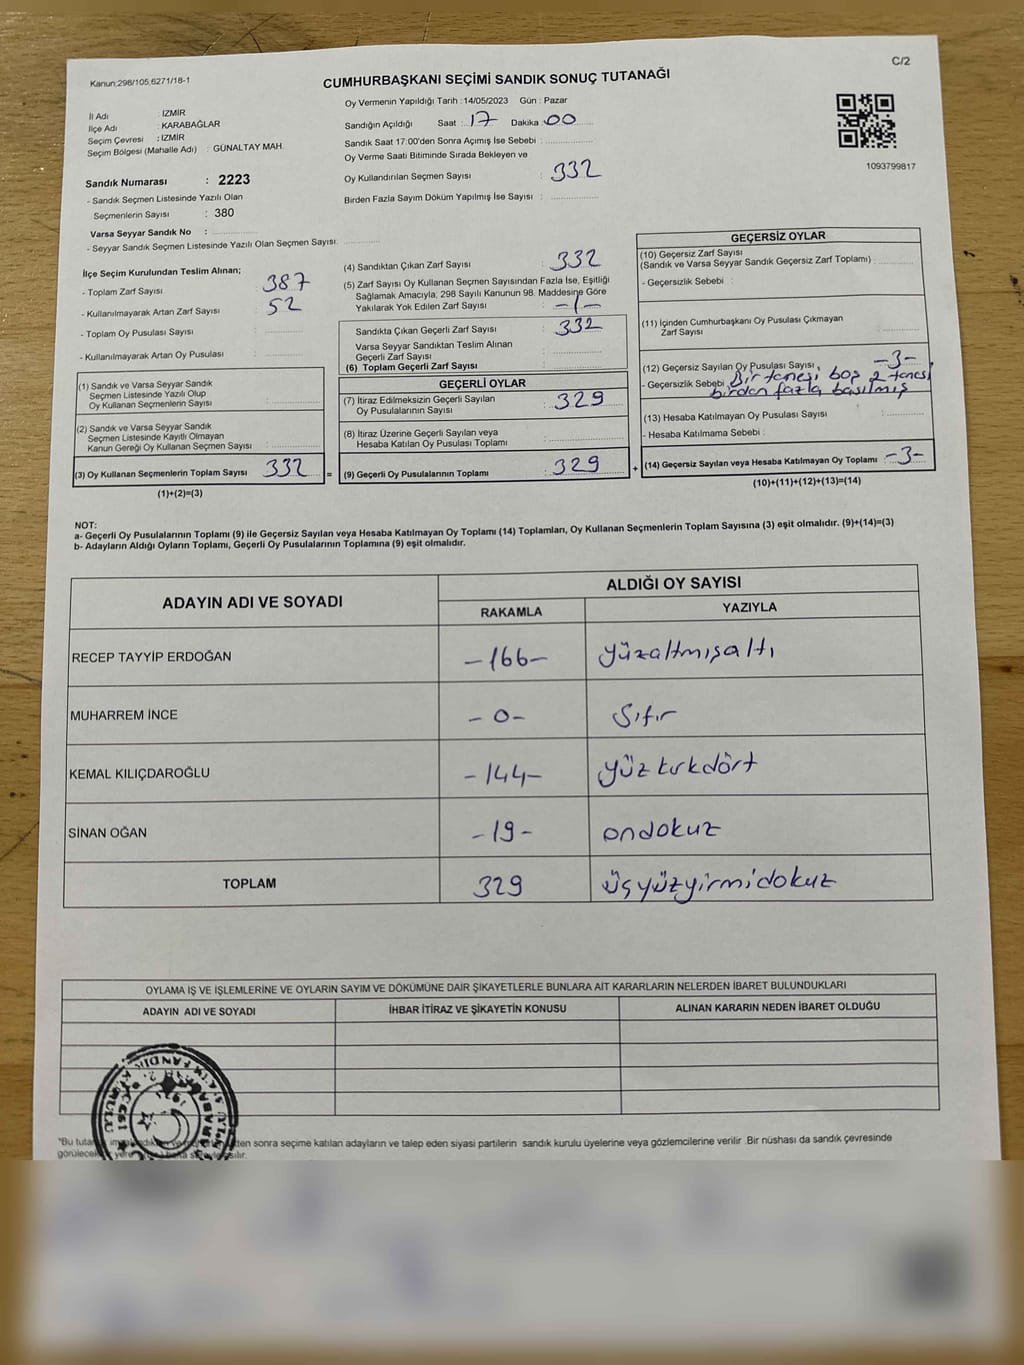 Kanun:298/105,6271/18-1
CUMHURBAŞKANI SEÇİMİ SANDIK SONUÇ TUTANAĞI
C/2
İl Adı : İZMİR
İlçe Adı : KARABAĞLAR
Seçim Çevresi : İZMİR
Seçim Bölgesi (Mahalle Adı) : GÜNALTAY MAH.
Sandık Numarası : 2223
- Sandık Seçmen Listesinde Yazılı Olan
Seçmenlerin Sayısı : 380
Varsa Seyyar Sandık No :
- Seyyar Sandık Seçmen Listesinde Yazılı Olan Seçmen Sayısı:
Oy Vermenin Yapıldığı Tarih :14/05/2023 Gün : Pazar
Sandığın Açıldığı Saat : 17 Dakika 00
Sandık Saat 17:00'den Sonra Açımış İse Sebebi :
Oy Verme Saati Bitiminde Sırada Bekleyen ve
Oy Kullandırılan Seçmen Sayısı : 332
Birden Fazla Sayım Döküm Yapılmış İse Sayısı :
1093799817
İlçe Seçim Kurulundan Teslim Alınan;
- Toplam Zarf Sayısı : 387
- Kullanılmayarak Artan Zarf Sayısı : 52
- Toplam Oy Pusulası Sayısı :
- Kullanılmayarak Artan Oy Pusulası :
(1) Sandık ve Varsa Seyyar Sandık
Seçmen Listesinde Yazılı Olup
Oy Kullanan Seçmenlerin Sayısı :
(2) Sandık ve Varsa Seyyar Sandık
Seçmen Listesinde Kayıtlı Olmayan
Kanun Gereği Oy Kullanan Seçmen Sayısı :
(3) Oy Kullanan Seçmenlerin Toplam Sayısı 332 =
(1)+(2)=(3)
(4) Sandıktan Çıkan Zarf Sayısı : 332
(5) Zarf Sayısı Oy Kullanan Seçmen Sayısından Fazla İse, Eşitliği
Sağlamak Amacıyla, 298 Sayılı Kanunun 98. Maddesine Göre
Yakılarak Yok Edilen Zarf Sayısı : -/-
Sandıkta Çıkan Geçerli Zarf Sayısı : 332
Varsa Seyyar Sandıktan Teslim Alınan
Geçerli Zarf Sayısı :
(6) Toplam Geçerli Zarf Sayısı :
GEÇERLİ OYLAR
(7) İtiraz Edilmeksizin Geçerli Sayılan
Oy Pusulalarının Sayısı : 329
(8) İtiraz Üzerine Geçerli Sayılan veya
Hesaba Katılan Oy Pusulaları Toplamı :
(9) Geçerli Oy Pusulalarının Toplamı : 329 +
GEÇERSİZ OYLAR
(10) Geçersiz Zarf Sayısı
(Sandık ve Varsa Seyyar Sandık Geçersiz Zarf Toplamı) :
- Geçersizlik Sebebi :
(11) İçinden Cumhurbaşkanı Oy Pusulası Çıkmayan
Zarf Sayısı :
(12) Geçersiz Sayılan Oy Pusulası Sayısı : -3-
- Geçersizlik Sebebi : Bir tanesi boş 2 tanesi
birden fazla basılmış
(13) Hesaba Katılmayan Oy Pusulası Sayısı :
- Hesaba Katılmama Sebebi :
(14) Geçersiz Sayılan veya Hesaba Katılmayan Oy Toplamı : -3-
(10)+(11)+(12)+(13)=(14)
NOT:
a- Geçerli Oy Pusulalarının Toplamı (9) ile Geçersiz Sayılan veya Hesaba Katılmayan Oy Toplamı (14) Toplamları, Oy Kullanan Seçmenlerin Toplam Sayısına (3) eşit olmalıdır. (9)+(14)=(3)
b- Adayların Aldığı Oyların Toplamı, Geçerli Oy Pusulalarının Toplamına (9) eşit olmalıdır.
ADAYIN ADI VE SOYADI ALDIĞI OY SAYISI
RAKAMLA YAZIYLA
RECEP TAYYİP ERDOĞAN -166- yüzaltmışaltı
MUHARREM İNCE -0- Sıfır
KEMAL KILIÇDAROĞLU -144- yüzkırkdört
SİNAN OĞAN -19- ondokuz
TOPLAM 329 üçyüzyirmidokuz
OYLAMA İŞ VE İŞLEMLERİNE VE OYLARIN SAYIM VE DÖKÜMÜNE DAİR ŞİKAYETLERLE BUNLARA AİT KARARLARIN NELERDEN İBARET BULUNDUKLARI
ADAYIN ADI VE SOYADI İHBAR İTİRAZ VE ŞİKAYETİN KONUSU ALINAN KARARIN NEDEN İBARET OLDUĞU
*Bu sonra seçime katılan adayların ve talep eden siyasi partilerin sandık kurulu üyelerine veya gözlemcilerine verilir .Bir nüshası da sandık çevresinde